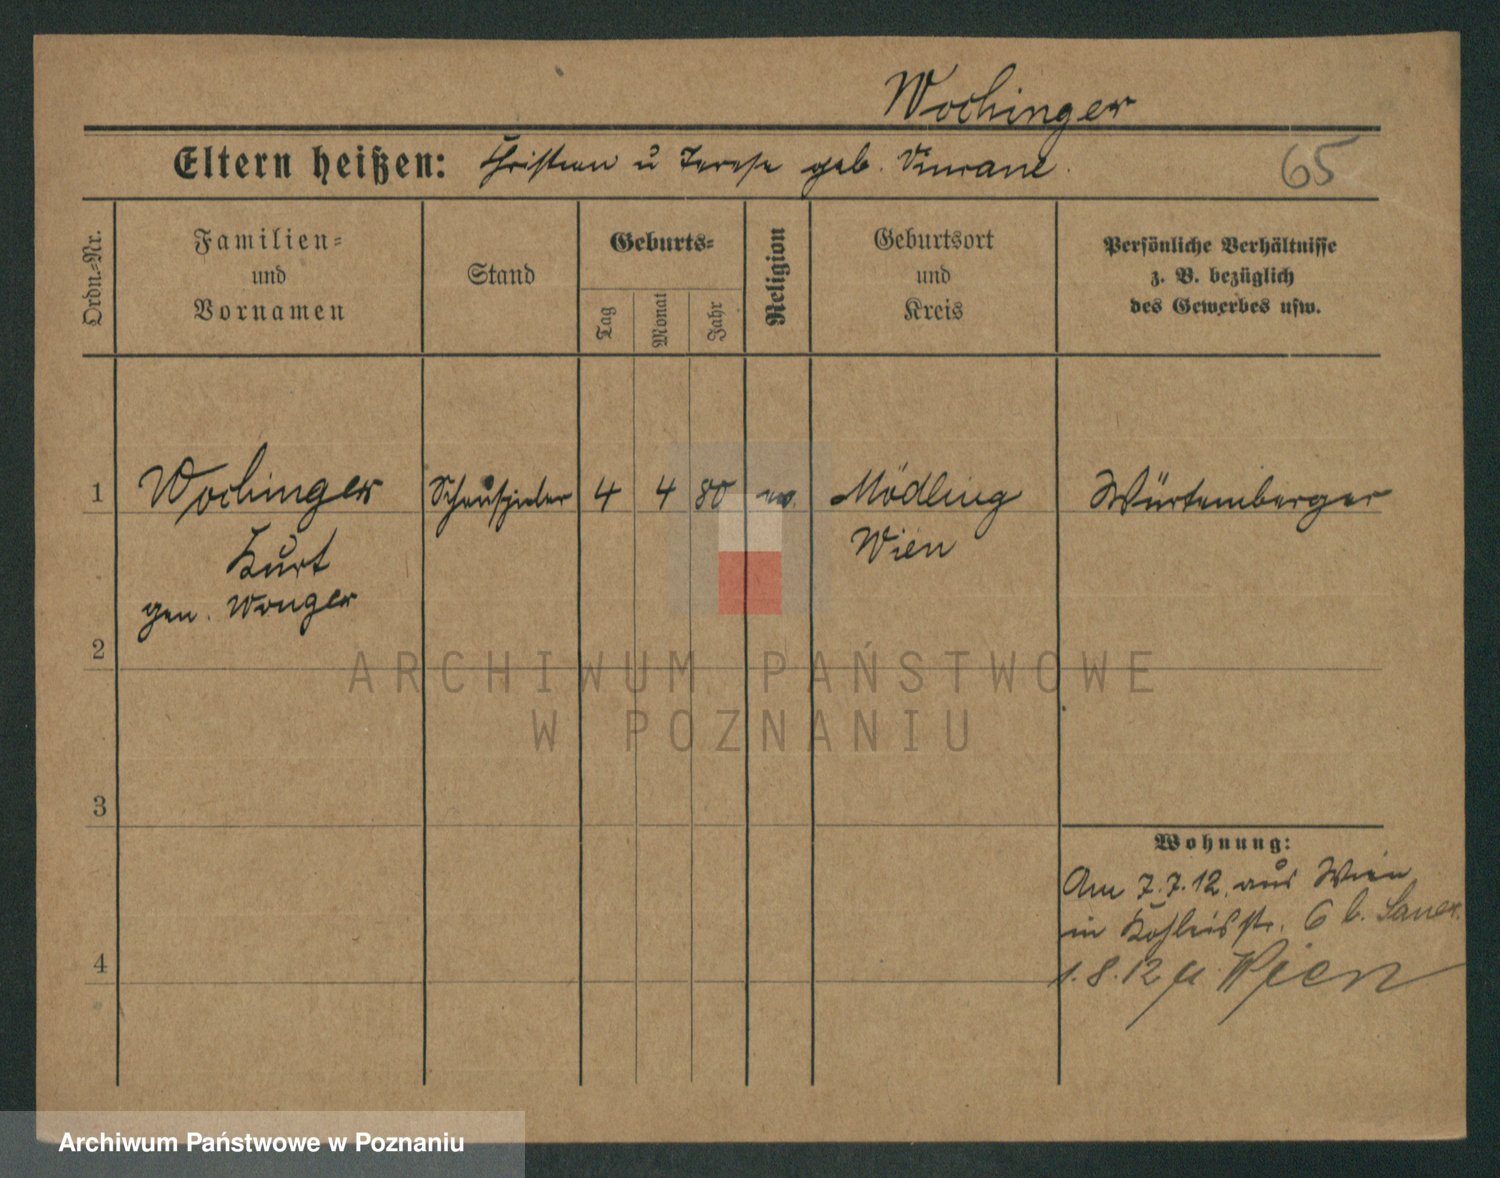 Wochinger
Eltern heißen: Christian u Terese geb.
65
Ordn.=Nr.
Familien=
und
Vornamen
Stand
Geburts=
Tag
Monat
Jahr
Religion
Geburtsort
und
Kreis
Persönliche Verhältnisse
z. B. bezüglich
des Gewerbes usw.
1 Wochinger Schauspieler 4 4 80 ev. Mödling Würtemberger
Kurt Wien
gen. Wonger
2
3
4
Wohnung:
Am 7.7.12. aus Wien
in Kohleisstr. 6 b. Sauer.
1.8.12 Wien
ARCHIWUM PAŃSTWOWE
W POZNANIU
Archiwum Państwowe w Poznaniu